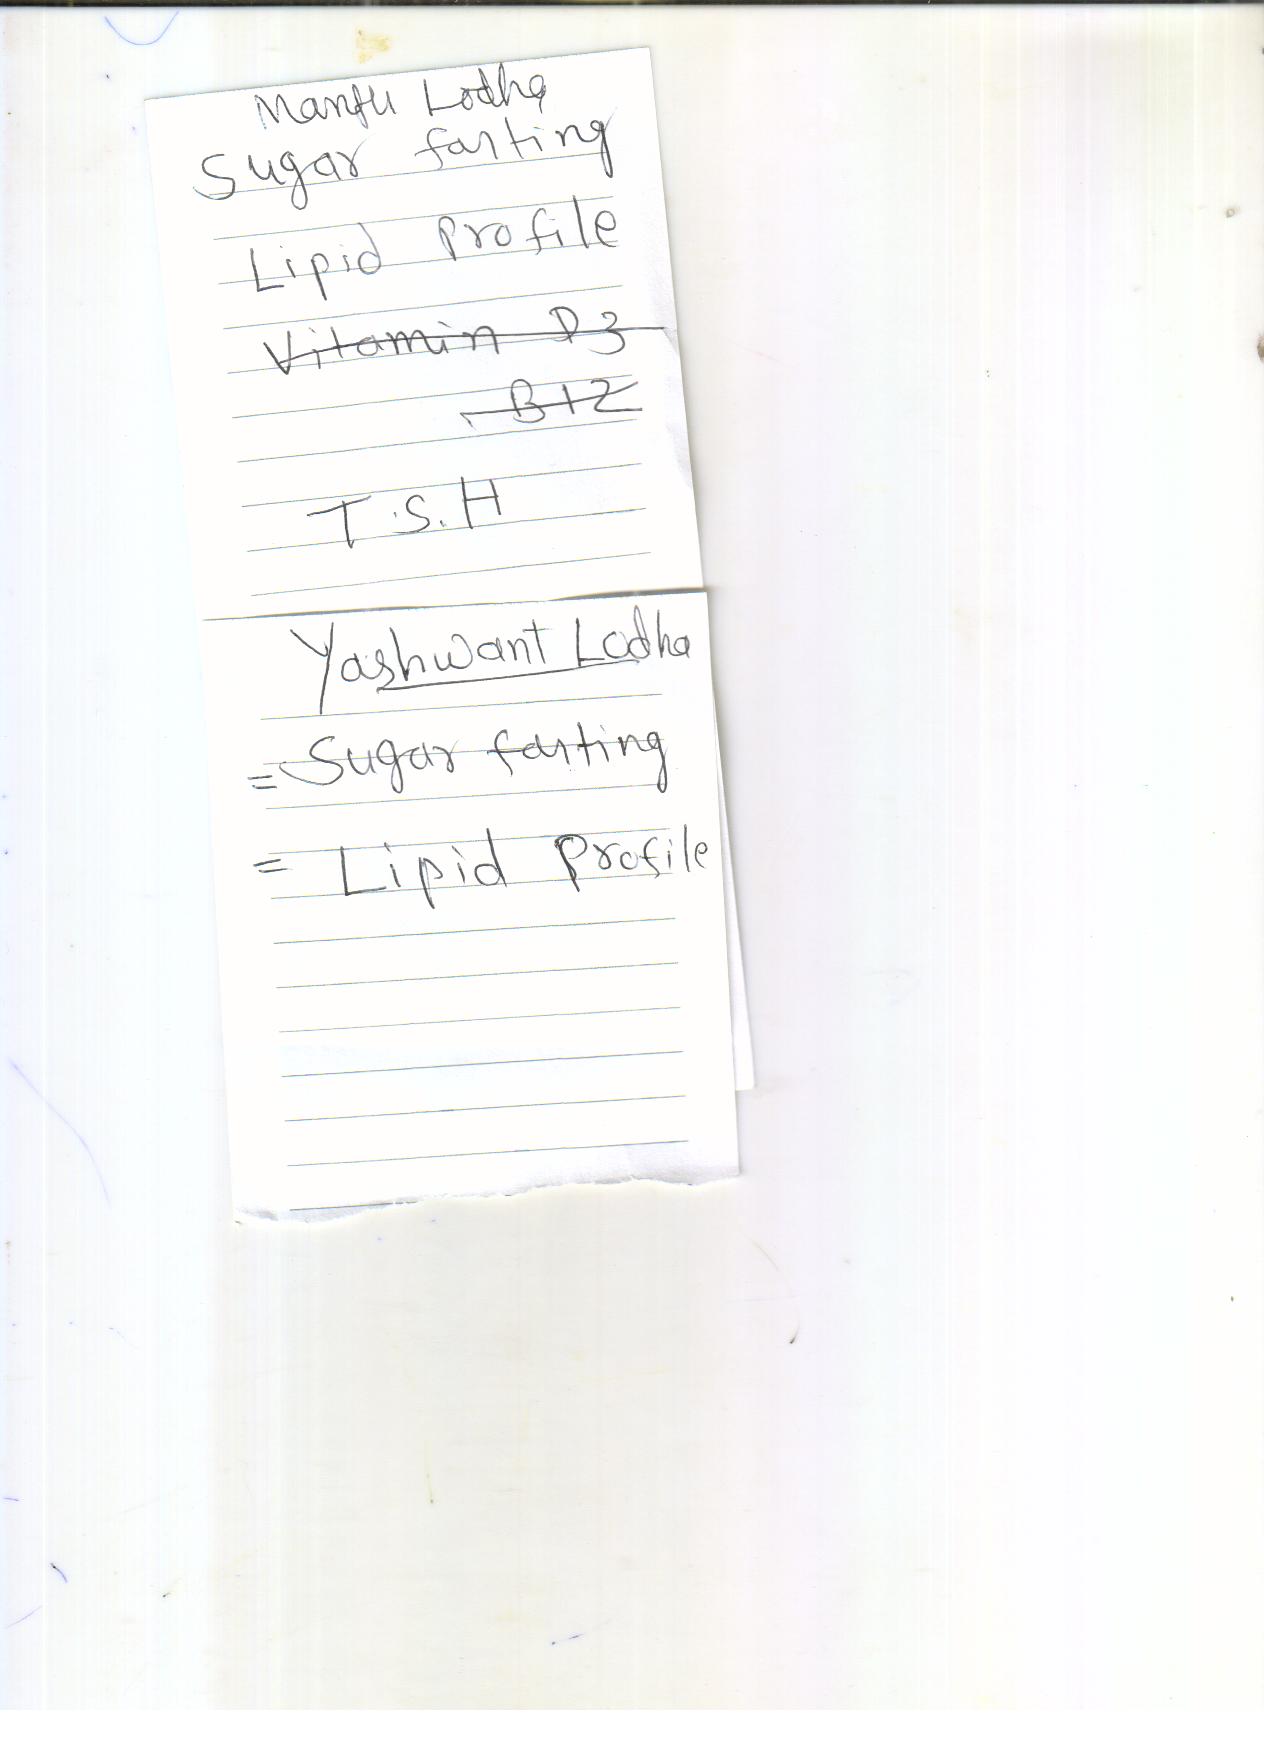 Manju Lodha
Sugar fasting
Lipid Profile
Vitamin D3
B12
T.S.H
Yashwant Lodha
= Sugar fasting
= Lipid Profile